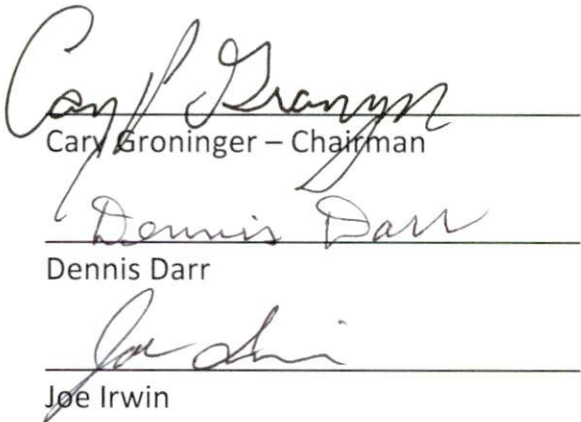 Cary Groninger
Cary Groninger – Chairman
Dennis Darr
Dennis Darr
Joe Irwin
Joe Irwin